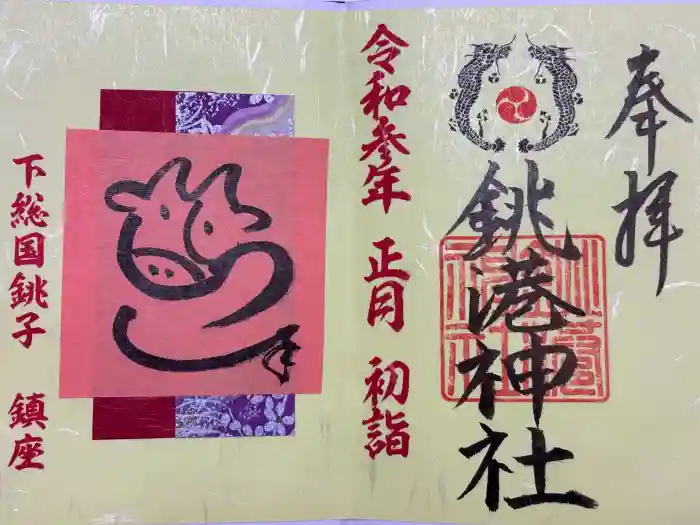 奉拝
銚港神社
令和参年 正月 初詣
下総国銚子 鎮座